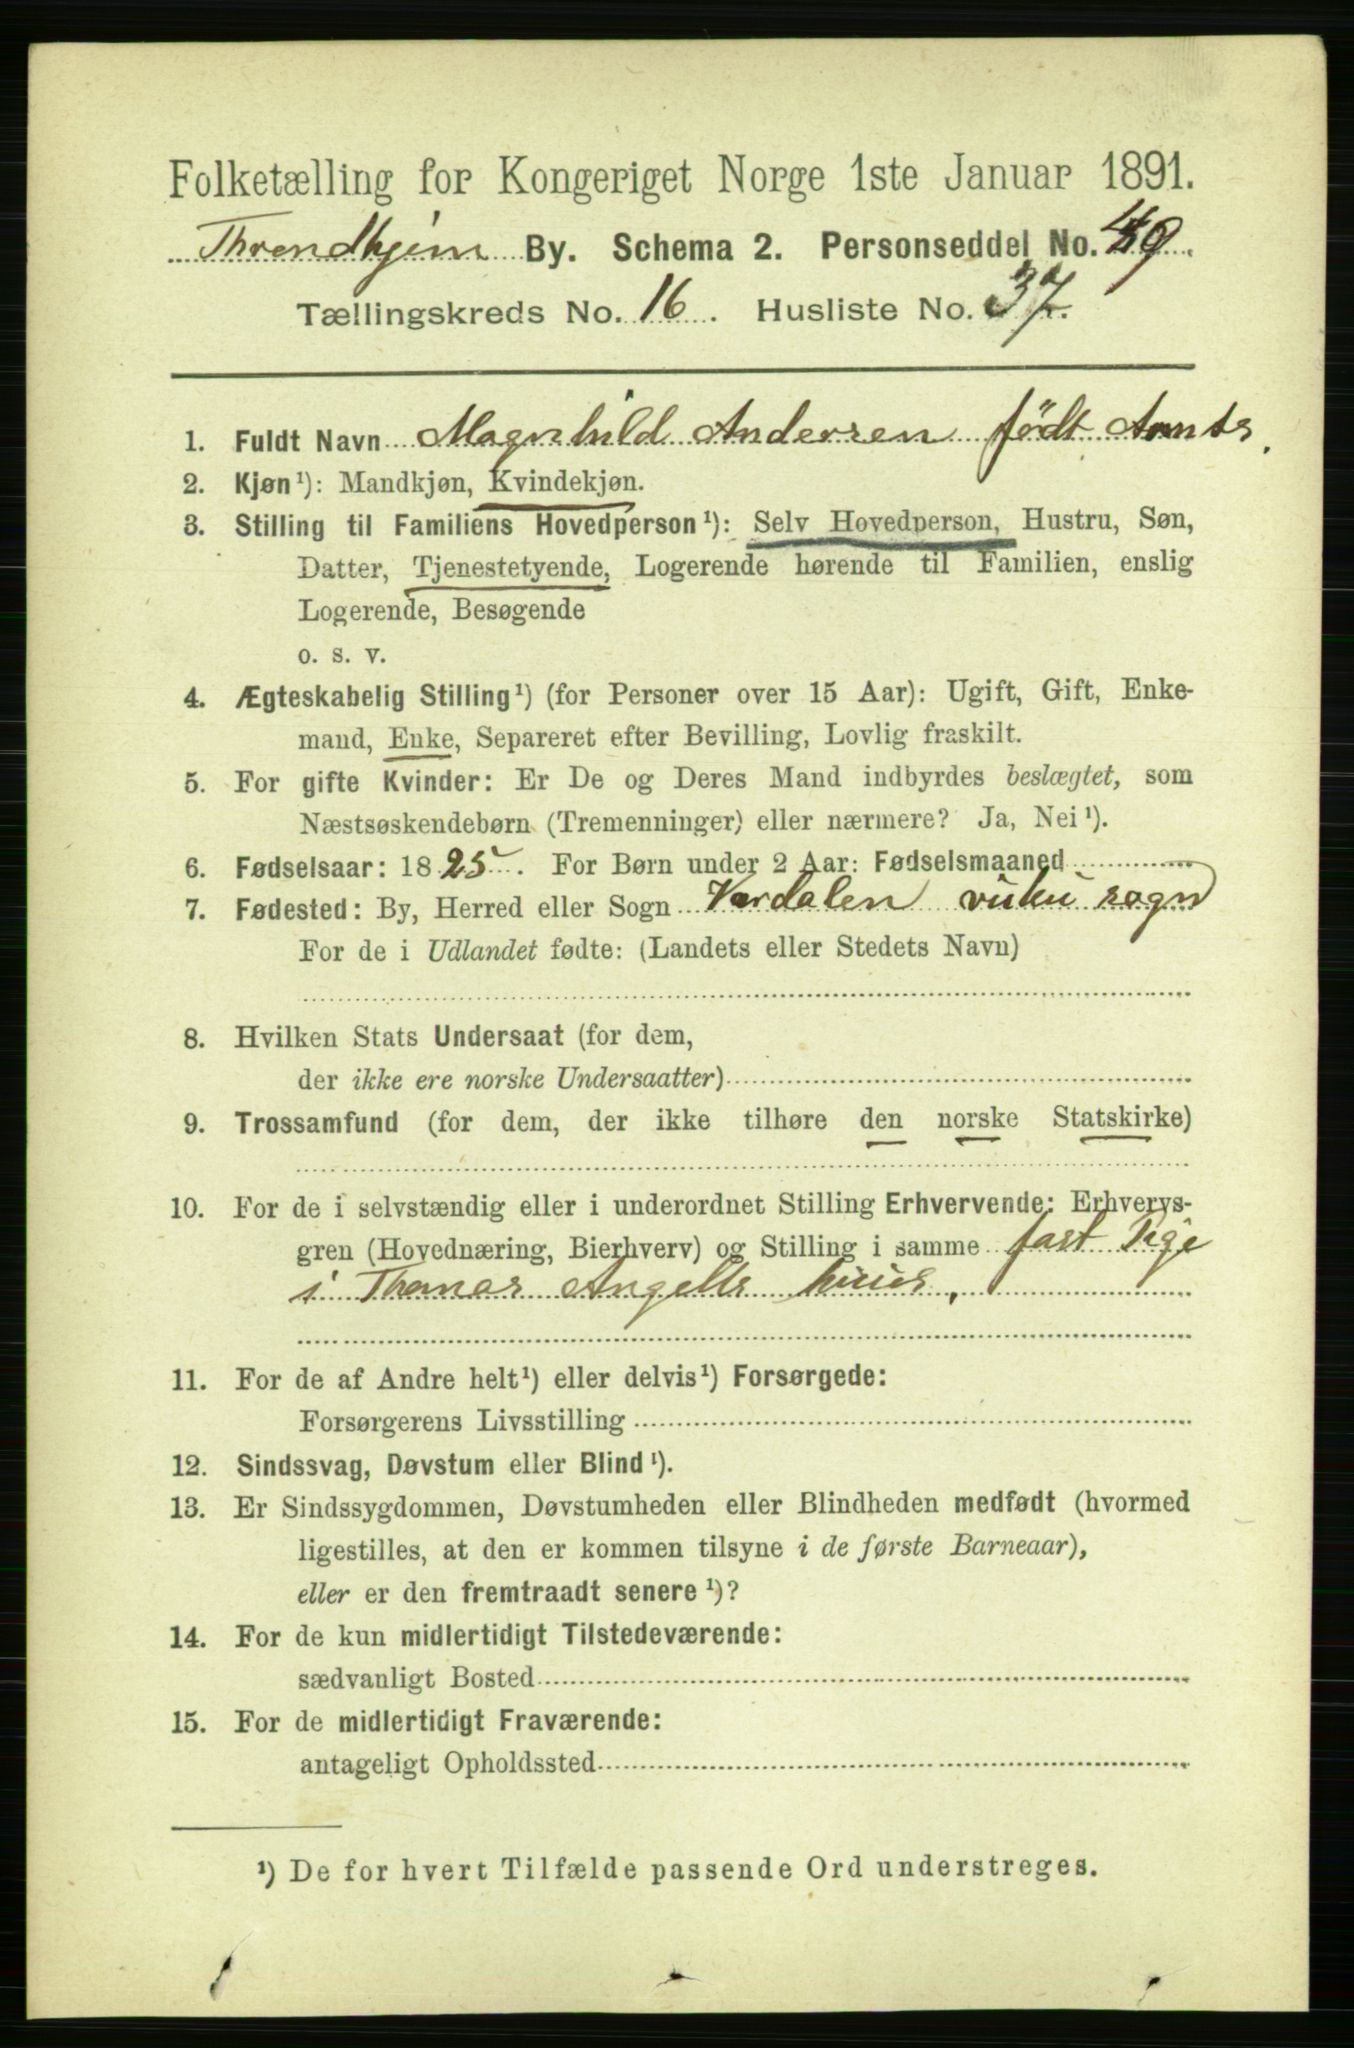 Folketælling for Kongeriget Norge 1ste Januar 1891.
Throndhjem By. Schema 2. Personseddel No. 49
Tællingskreds No. 16. Husliste No. 37.
1. Fuldt Navn Magnhild Andersen født Arnts.
2. Kjøn¹): Mandkjøn, Kvindekjøn.
3. Stilling til Familiens Hovedperson¹): Selv Hovedperson, Hustru, Søn,
Datter, Tjenestetyende, Logerende hørende til Familien, enslig
Logerende, Besøgende
o. s. v.
4. Ægteskabelig Stilling¹) (for Personer over 15 Aar): Ugift, Gift, Enke-
mand, Enke, Separeret efter Bevilling, Lovlig fraskilt.
5. For gifte Kvinder: Er De og Deres Mand indbyrdes beslægtet, som
Næstsøskendebørn (Tremenninger) eller nærmere? Ja, Nei¹).
6. Fødselsaar: 1825. For Børn under 2 Aar: Fødselsmaaned
7. Fødested: By, Herred eller Sogn Værdalen vuku sogn
For de i Udlandet fødte: (Landets eller Stedets Navn)
8. Hvilken Stats Undersaat (for dem,
der ikke ere norske Undersaatter)
9. Trossamfund (for dem, der ikke tilhøre den norske Statskirke)
10. For de i selvstændig eller i underordnet Stilling Erhvervende: Erhvervs-
gren (Hovednæring, Bierhverv) og Stilling i samme fast Pige
i Thomas Angells huus.
11. For de af Andre helt¹) eller delvis¹) Forsørgede:
Forsørgerens Livsstilling
12. Sindssvag, Døvstum eller Blind¹).
13. Er Sindssygdommen, Døvstumheden eller Blindheden medfødt (hvormed
ligestilles, at den er kommen tilsyne i de første Barneaar),
eller er den fremtraadt senere¹)?
14. For de kun midlertidigt Tilstedeværende:
sædvanligt Bosted
15. For de midlertidigt Fraværende:
antageligt Opholdssted
¹) De for hvert Tilfælde passende Ord understreges.